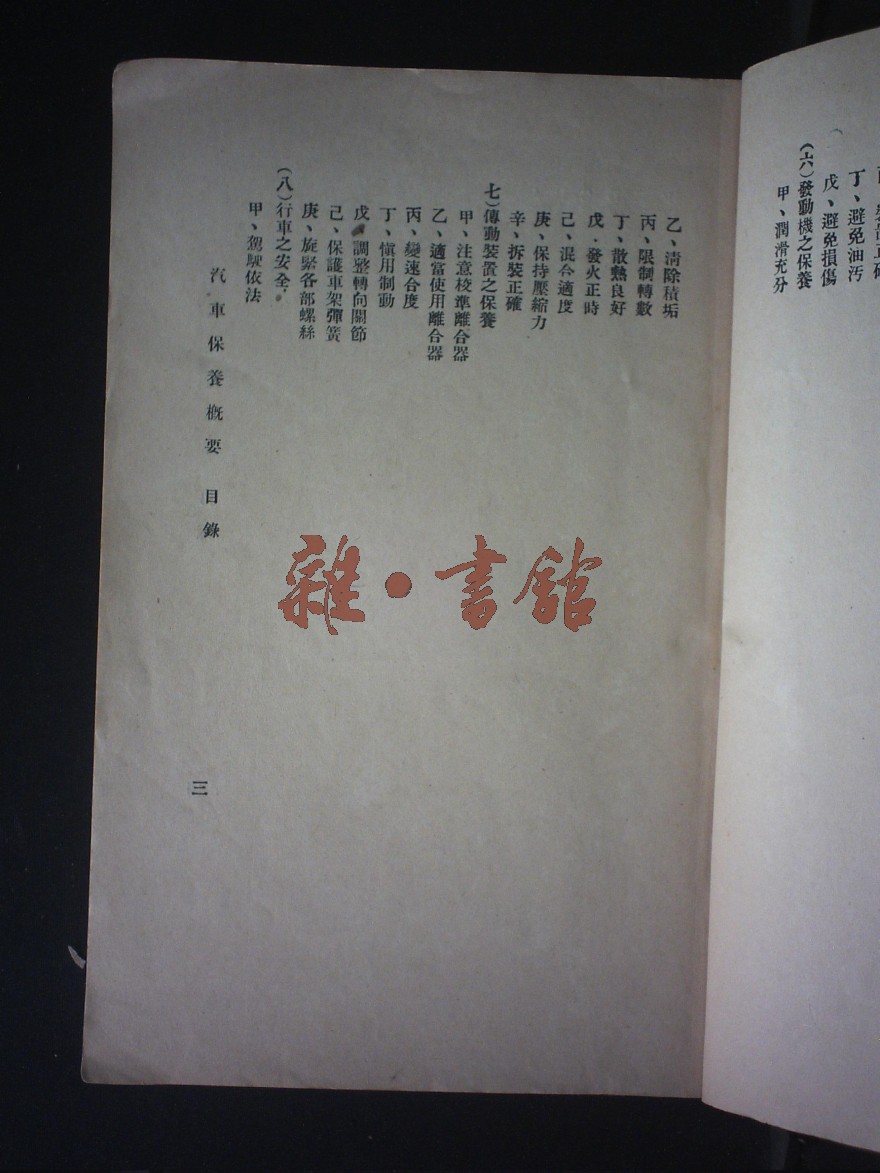 丁、避免油汚
戊、避免損傷
(六)發動機之保養
甲、潤滑充分
乙、淸除積垢
丙、限制轉數
丁、散熱良好
戊、發火正時
己、混合適度
庚、保持壓縮力
辛、拆裝正確
七)傳動裝置之保養
甲、注意校準離合器
乙、適當使用離合器
丙、變速合度
丁、愼用制動
戊、調整轉向關節
己、保護車架彈簧
庚、旋緊各部螺絲
(八)行車之安全
甲、駕駛依法
汽車保養槪要 目錄
三
雜·書館